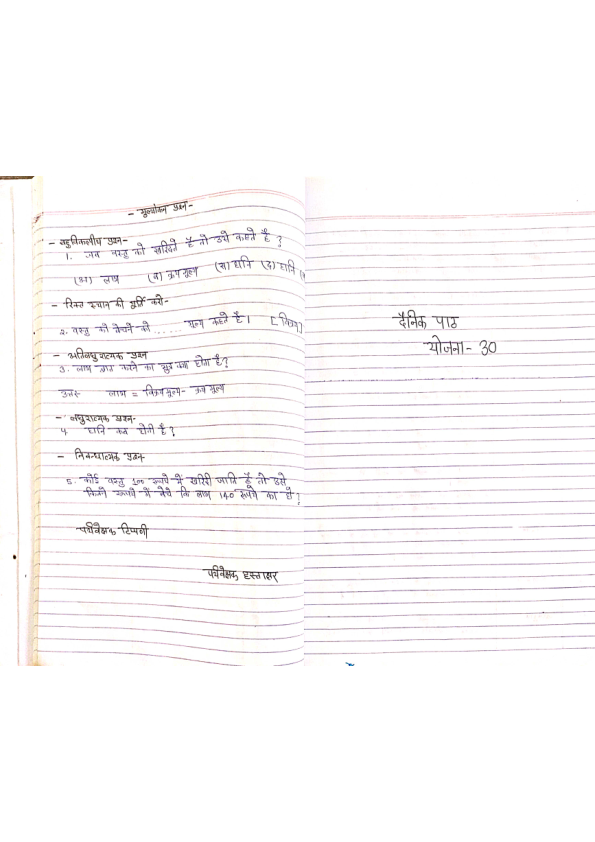 - मूल्यांकन प्रश्न -
- बहुविकल्पीय प्रश्न -
1. जब वस्तु को खरीदते हैं तो उसे कहते है ?
(अ) लाभ (ब) क्रयमूल्य (स) हानि (द) हानि
- रिक्त स्थान की पूर्ति करो -
2. वस्तु को बेचने को ...... मूल्य कहते है। [विक्रय]
- अतिलघुरात्मक प्रश्न
3. लाभ ज्ञात करने का सुत्र क्या होता है?
उत्तर- लाभ = विक्रयमूल्य - क्रयमूल्य
- लघुरात्मक प्रश्न-
4 हानि कब होती है ?
- निबन्धात्मक प्रश्न-
5. कोई वस्तु 100 रूपये में खरिदी जाति है तो उसे
कितने रूपये में बेचे कि लाभ 140 रूपये का हो ?
पर्यवेक्षक टिप्पणी
पर्यवेक्षक हस्ताक्षर
दैनिक पाठ
योजना - 30